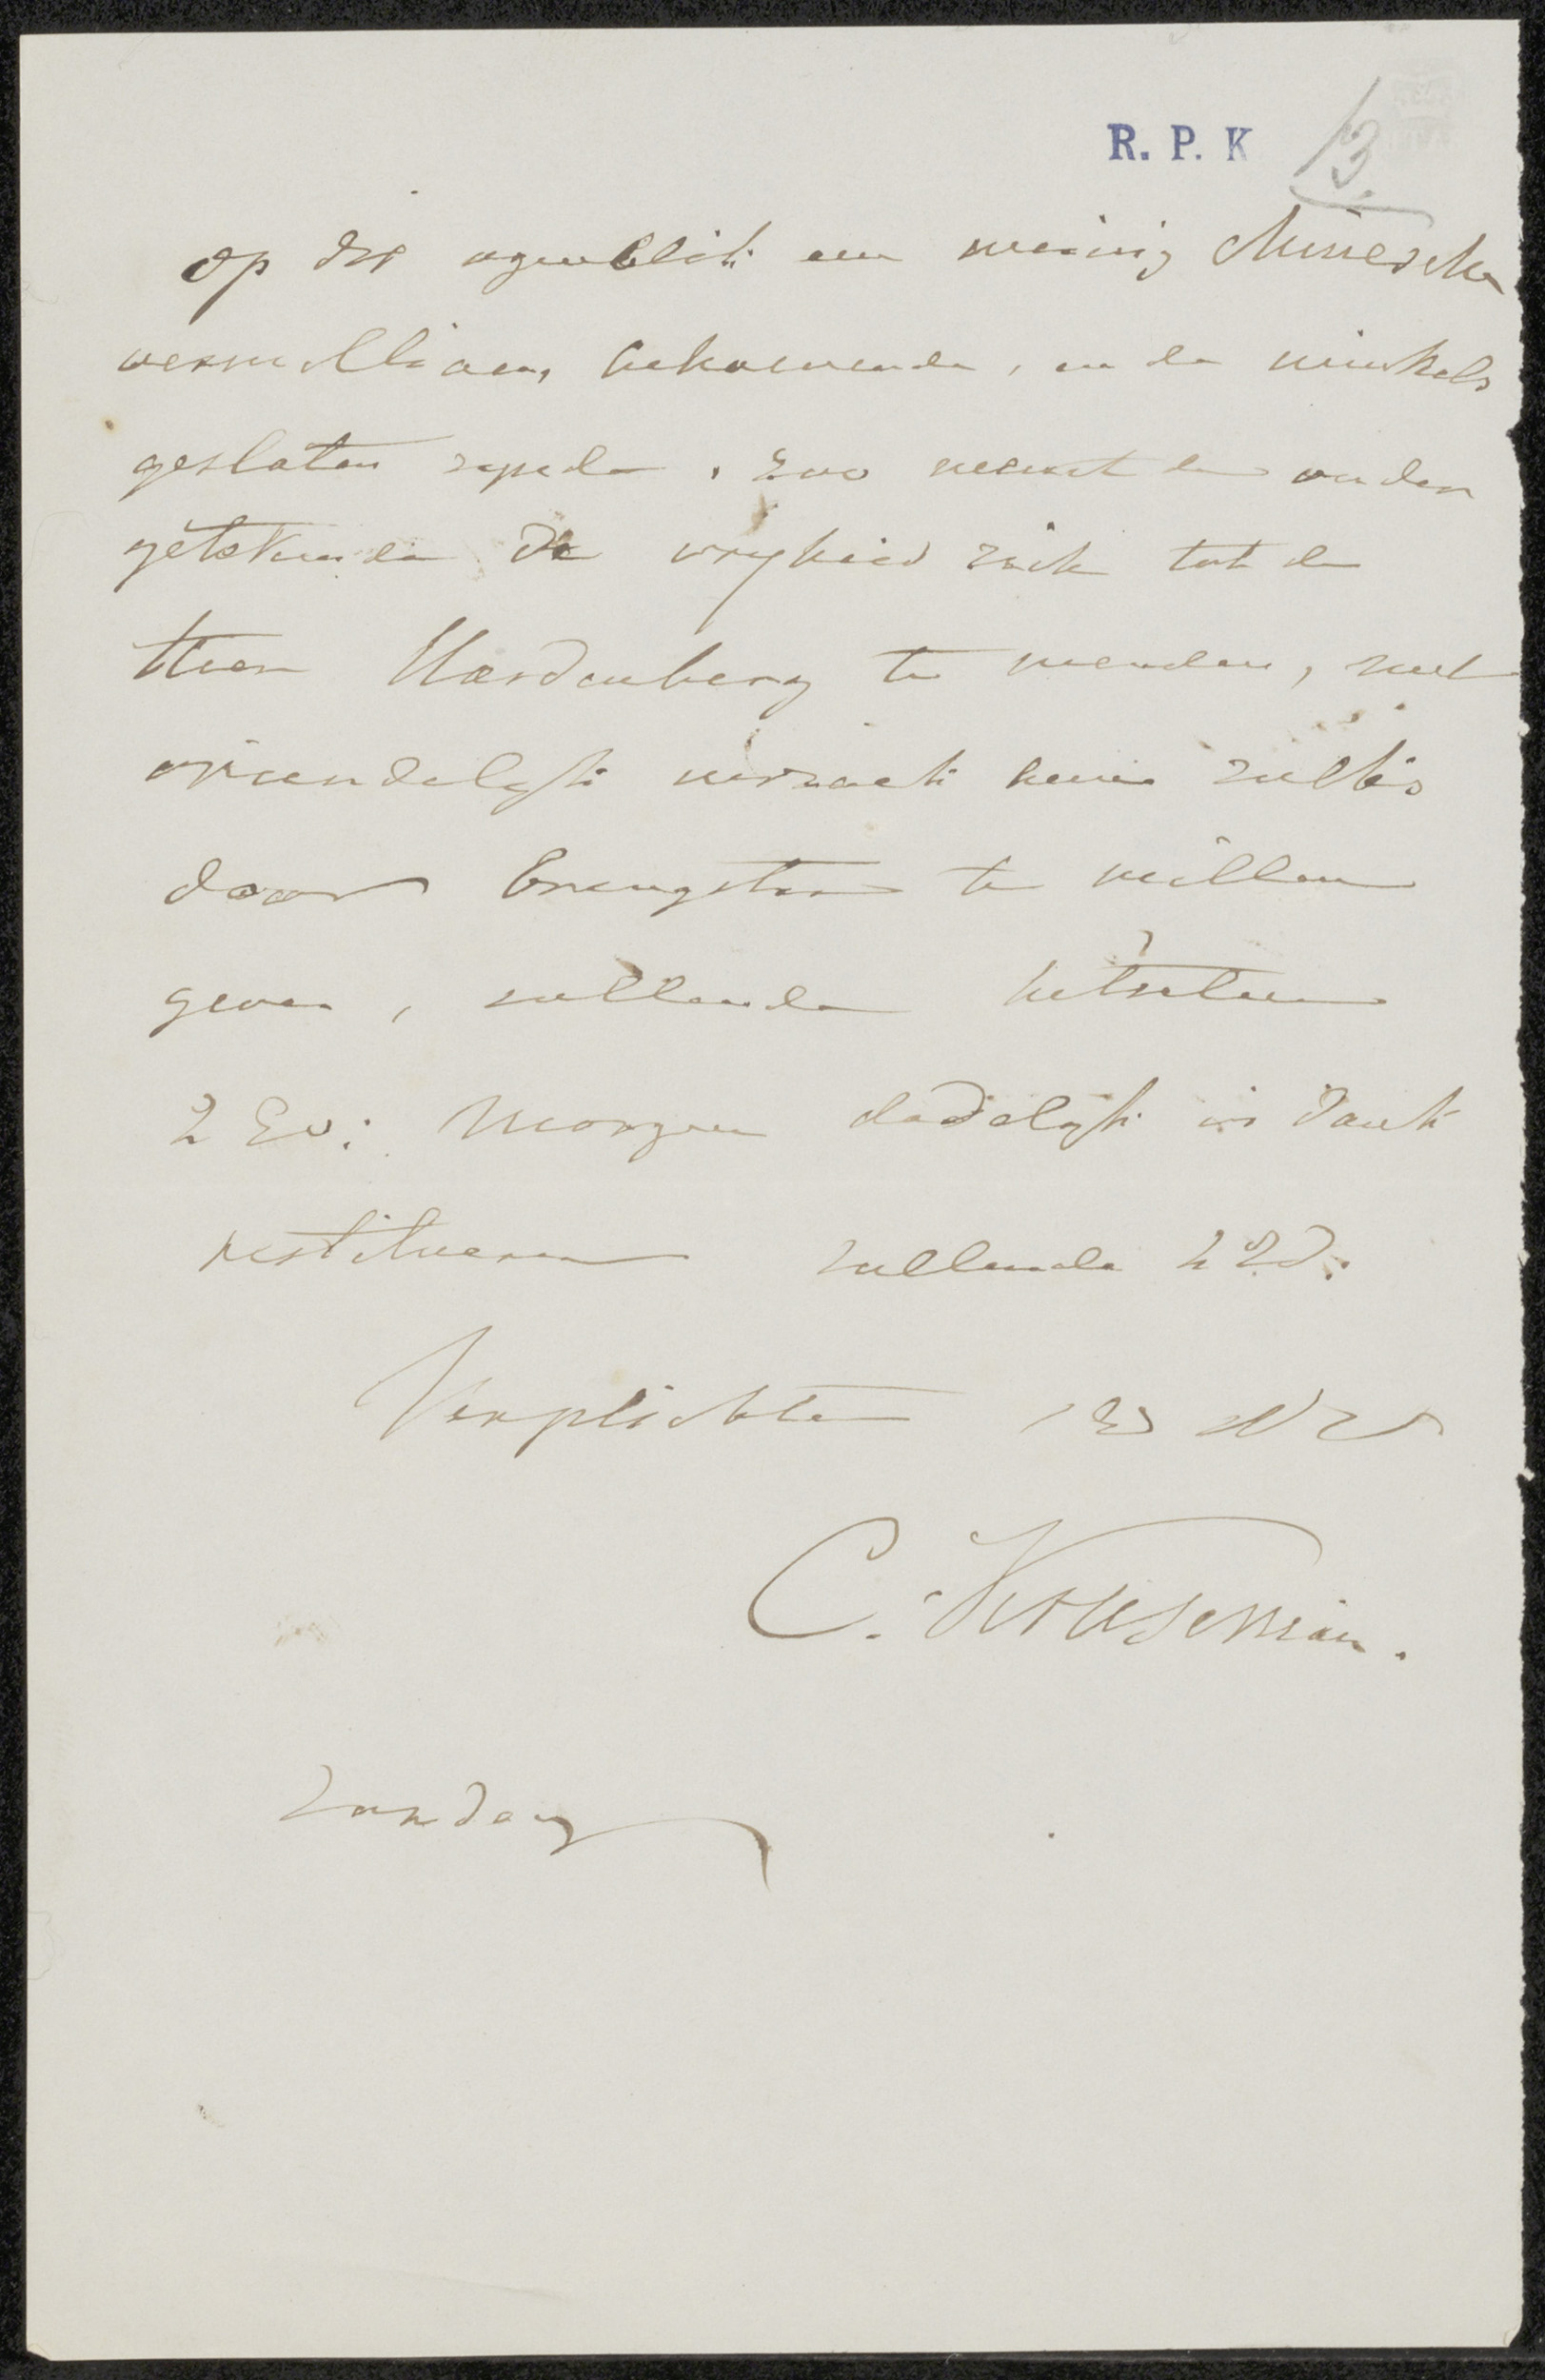 R. P. K
13.
op dit ogenblik een weinig Chinesche
vermillioen, behoevende, en de winkels
gesloten zynde, zoo neemt de onder
getekende de vryheid zich tot de
Heer Hardenberg te wenden, met
vriendelyk verzoek hem zulks
door brengster te willen
geven, zullende hetzelve
ZEd: morgen dadelyk in dank
restitueren zullende ZEd:
Verplichten
C. Kruseman.
Zondag